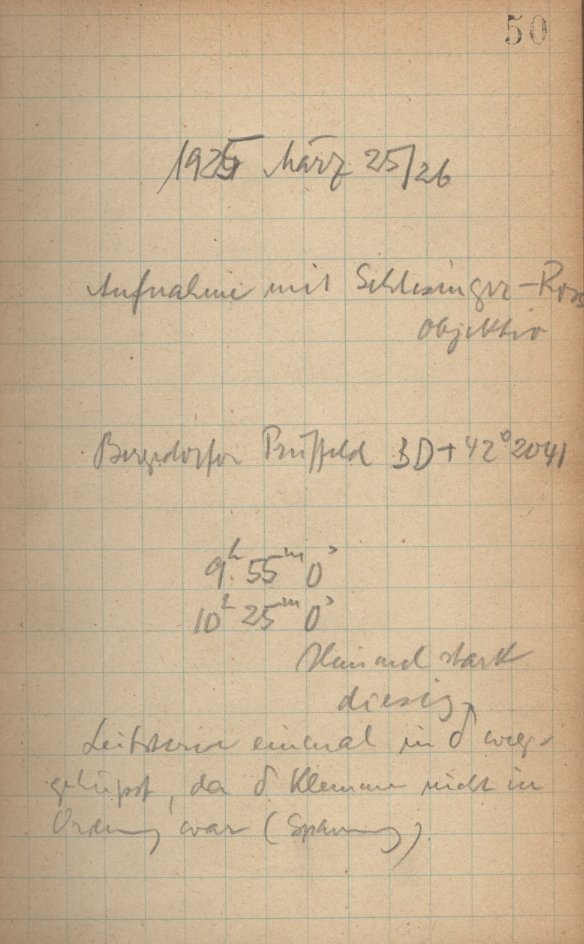 50
1925 März 25/26
Aufnahme mit Schlesinger-Ross
Objektiv
Bergedorfer Prüffeld BD+42°2041
9h 55m 0s
10h 25m 0s
Himmel stark
diesig,
Leitstern einmal in δ weg-
gehüpft, da δ Klemme nicht in
Ordnung war (Spannung).